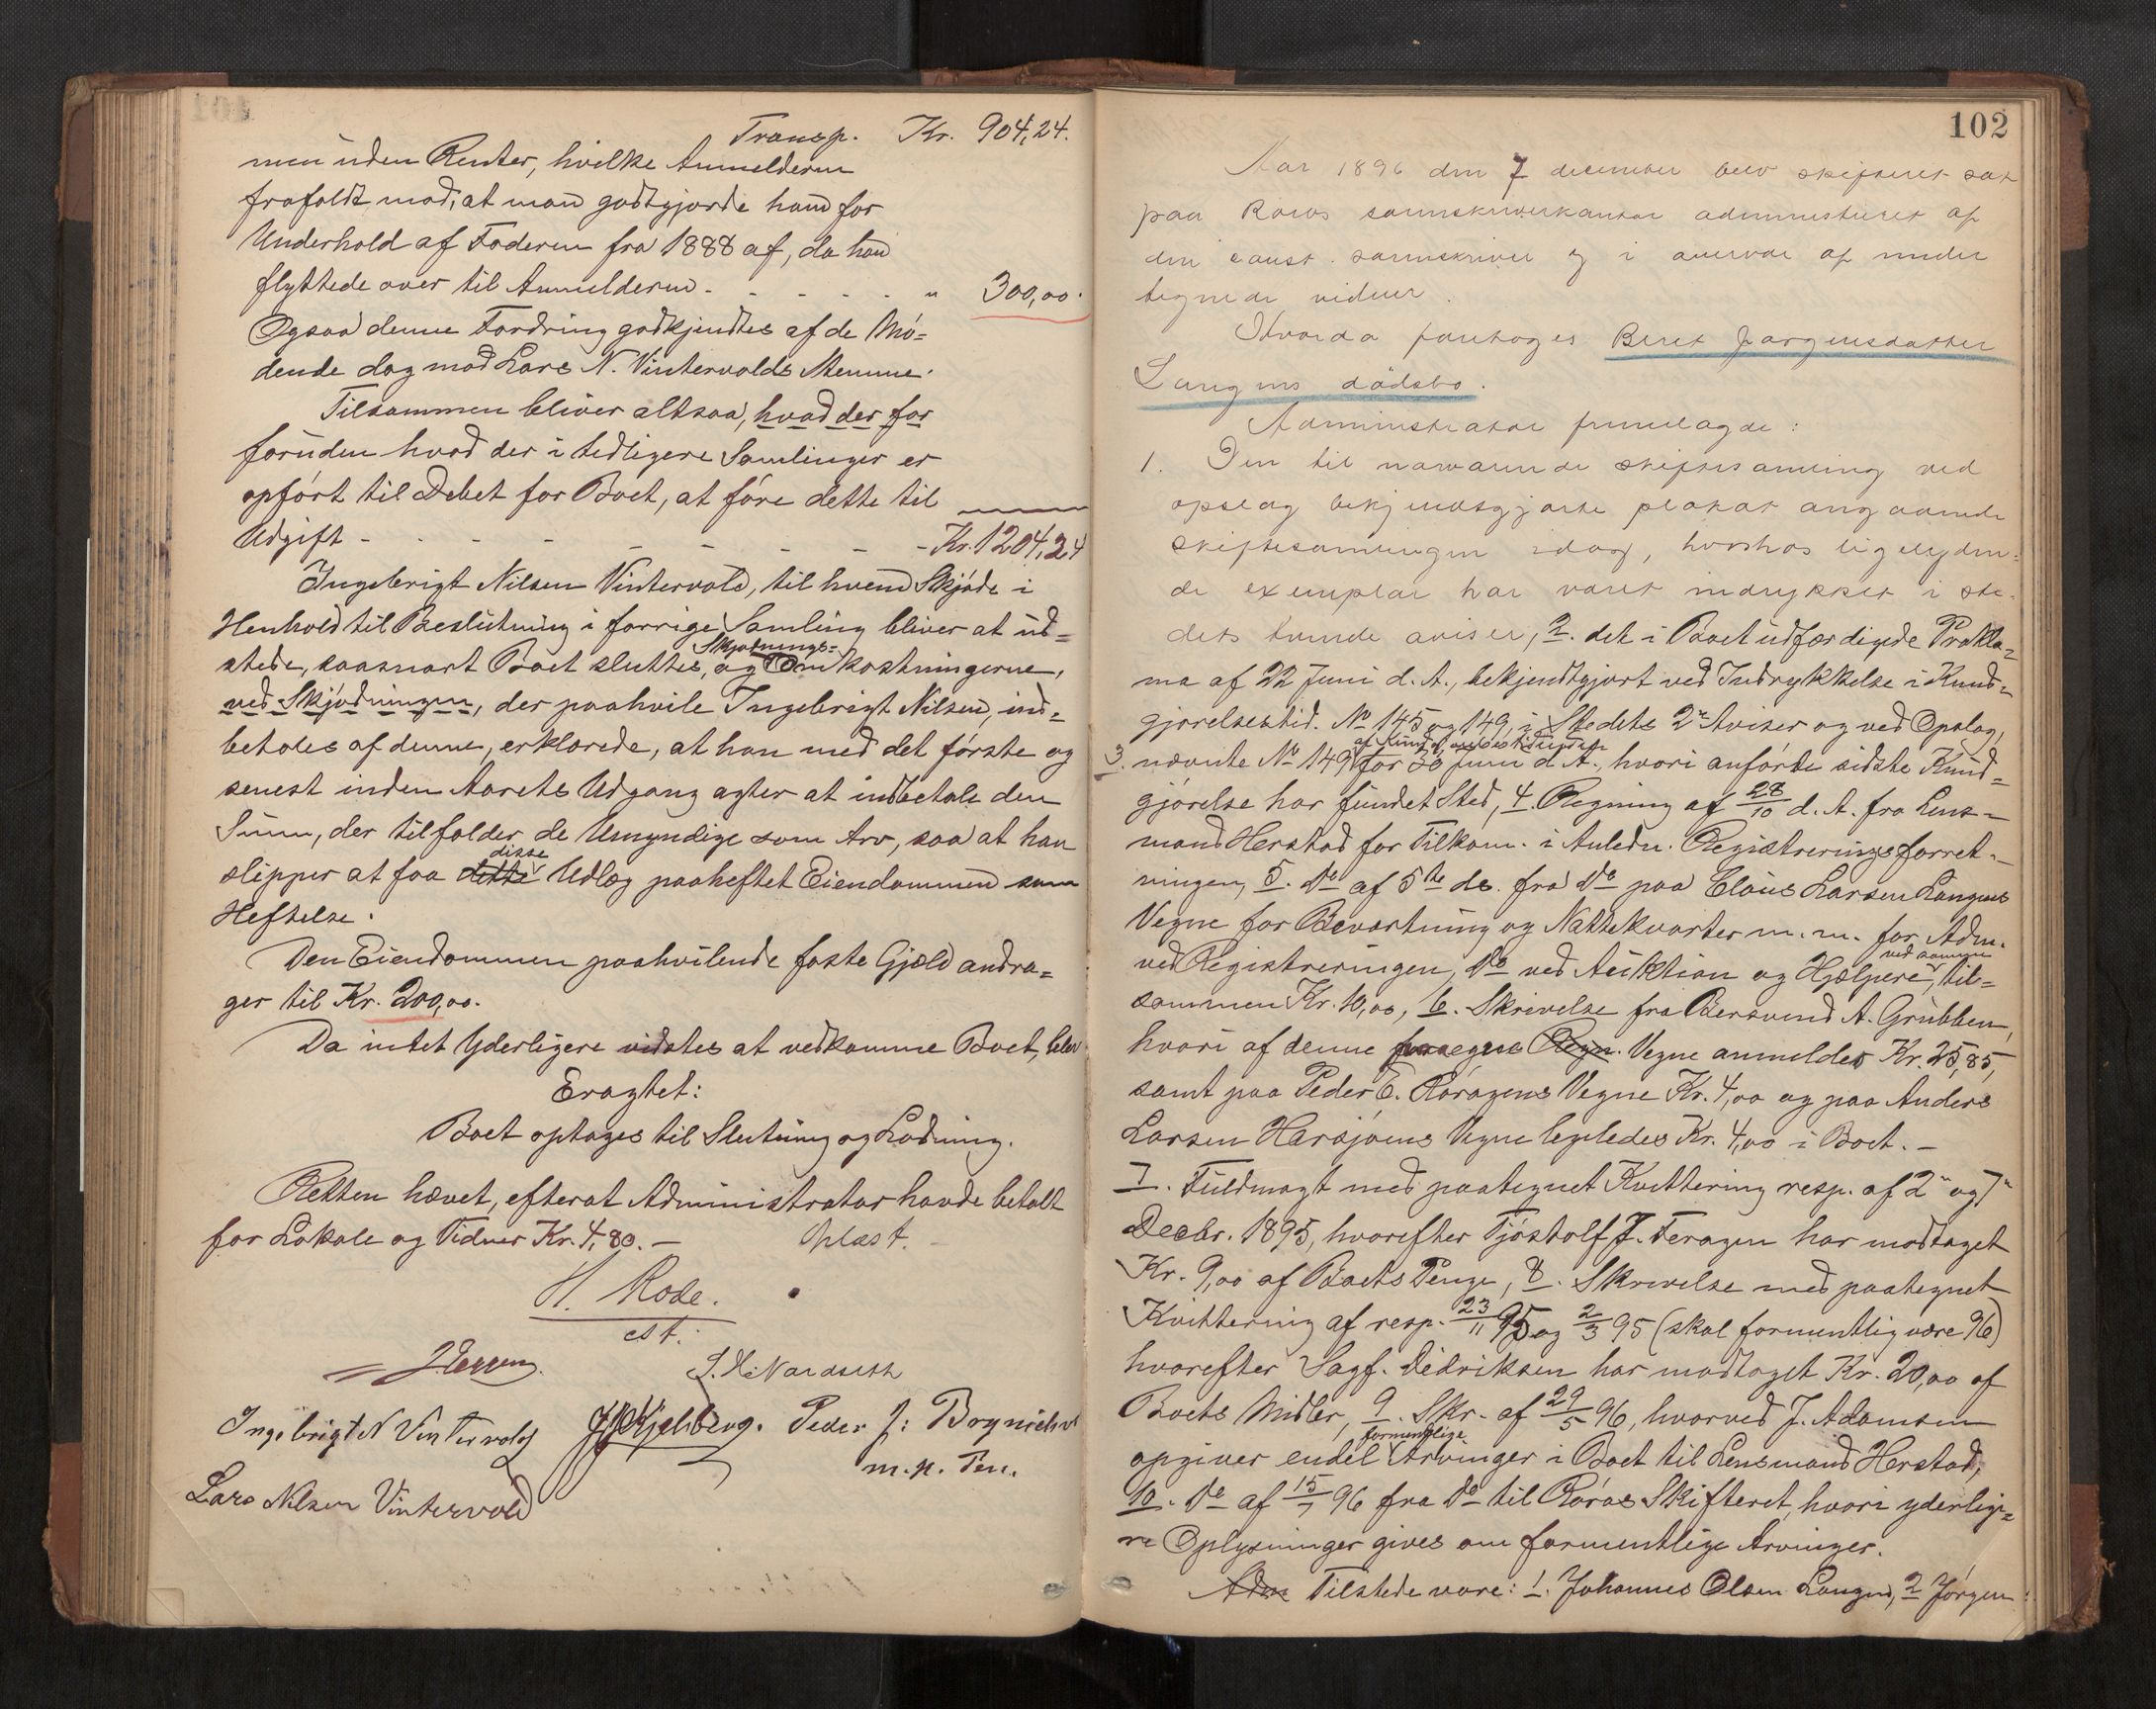 Transp. Kr. 904,24.
men uden Renter, hvilke Anmelderen
frafaldt mod, at man godtgjorde ham for
Underhold af Faderen fra 1888 af, da han
flyttede over til Anmelderen - - - - - " 300,00.
Ogsaa denne Fordring godkjendtes af de Mö=
dende dog mod Lars N. Vintervolds Stemme.
Tilsammen bliver altsaa, hvad der for
foruden hvad der i tidligere Samlinger er
opfört til Debet for Boet, at före dette til
Udgift - - - - - - - - Kr. 1204,24
Ingebrigt Nilsen Vintervold, til hvem Skjöde i
Henhold til Beslutning i forrige Samling bliver at ud=
stede, saasnart Boet sluttes, og Skjödnings= Omkostningerne,
ved Skjödningen, der paahvile Ingebrigt Nilsen, ind=
betales af denne, erklærede, at han med det förste og
senest inden Aarets Udgang agter at indbetale den
Sum, der tilfalder de Umyndige som Arv, saa at han
slipper at faa dette disse Udlæg paaheftet Eiendommen som
Heftelse.
Den Eiendommen paahvilende faste Gjæld andra=
ger til Kr. 200,00.
Da intet Yderligere vidstes at vedkomme Boet, blev
Eragtet:
Boet optages til Slutning og Lodning.
Retten hævet, efterat Administrator havde betalt
for Lokale og Vidner Kr. 4,80. — Oplæst. —
H. Rode.
cst.
J. H. Naraseth
Ingebrigt N Vintervold J Kjelsberg. Peder J: Brynildsvol
m. p. Pen.
Lars Nilsen Vintervold
102
Aar 1896 den 7 december blev skifteret sat
paa Röros sorenskriverkontor administreret af
den const. sorenskriver og i overvær af under
tegnede vidner.
Hvorda foretoges Beret Jörgensdatter
Langens dödsbo.
Administrator fremlagde:
1. Den til nærværende skiftesamling ved
opslag bekjendtgjorte plakat angaaende
skiftesamlingen idag, hvorhos ligelyden=
de exemplar har været indrykket i ste=
dets tvende aviser, 2. det i Boet udfærdigede Prokla=
ma af 22 Juni d. A., bekjendtgjort ved Indrykkelse i Kund=
gjörelsestid. No 145 og 149, i Stedets 2de Aviser og ved Opslag,
3. nævnte No 149 af Kundgjörelsestidende for 30 Juni d. A., hvori anförte sidste Kund=
gjörelse har fundet Sted, 4. Regning af 28/10 d. A. fra Lens=
mand Herstad for Tilkom. i Anledn. Registreringsforret=
ningen, 5. Do af 5te ds. fra Do paa Claus Larsen Langens
Vegne for Bevartning og Nattekvarter m. m. for Adm.
ved Registreringen, Do ved Auktion og Hjælpere ved samme, til=
sammen Kr. 10,00, 6. Skrivelse fra Bersvend A. Grubben,
hvori af denne paa egne Regn. Vegne anmeldes Kr. 25,85,
samt paa Peder E. Röragens Vegne Kr. 4,00 og paa Anders
Larsen Harsjöens Vegne ligeledes Kr. 4,00 i Boet. —
7. Fuldmagt med paategnet Kvittering resp. af 2" og 7"
Decbr. 1895, hvorefter Tjöstolf J. Feragen har modtaget
Kr. 9,00 af Boets Penge, 8. Skrivelse med paategnet
Kvittering af resp. 23/11 95 og 2/3 95 (skal formentlig være 96)
hvorefter Sagf. Didriksen har modtaget Kr. 20,00 af
Boets Midler, 9. Skr. af 29/5 96, hvorved J. Adamsen
opgiver endel formentlige Arvinger i Boet til Lensmand Herstad,
10. Do af 15/7 96 fra Do til Röros Skifteret, hvori yderlige=
re Oplysninger gives om formentlige Arvinger.
Adm Tilstede vare: 1. Johannes Olsen Langen, 2 Jörgen